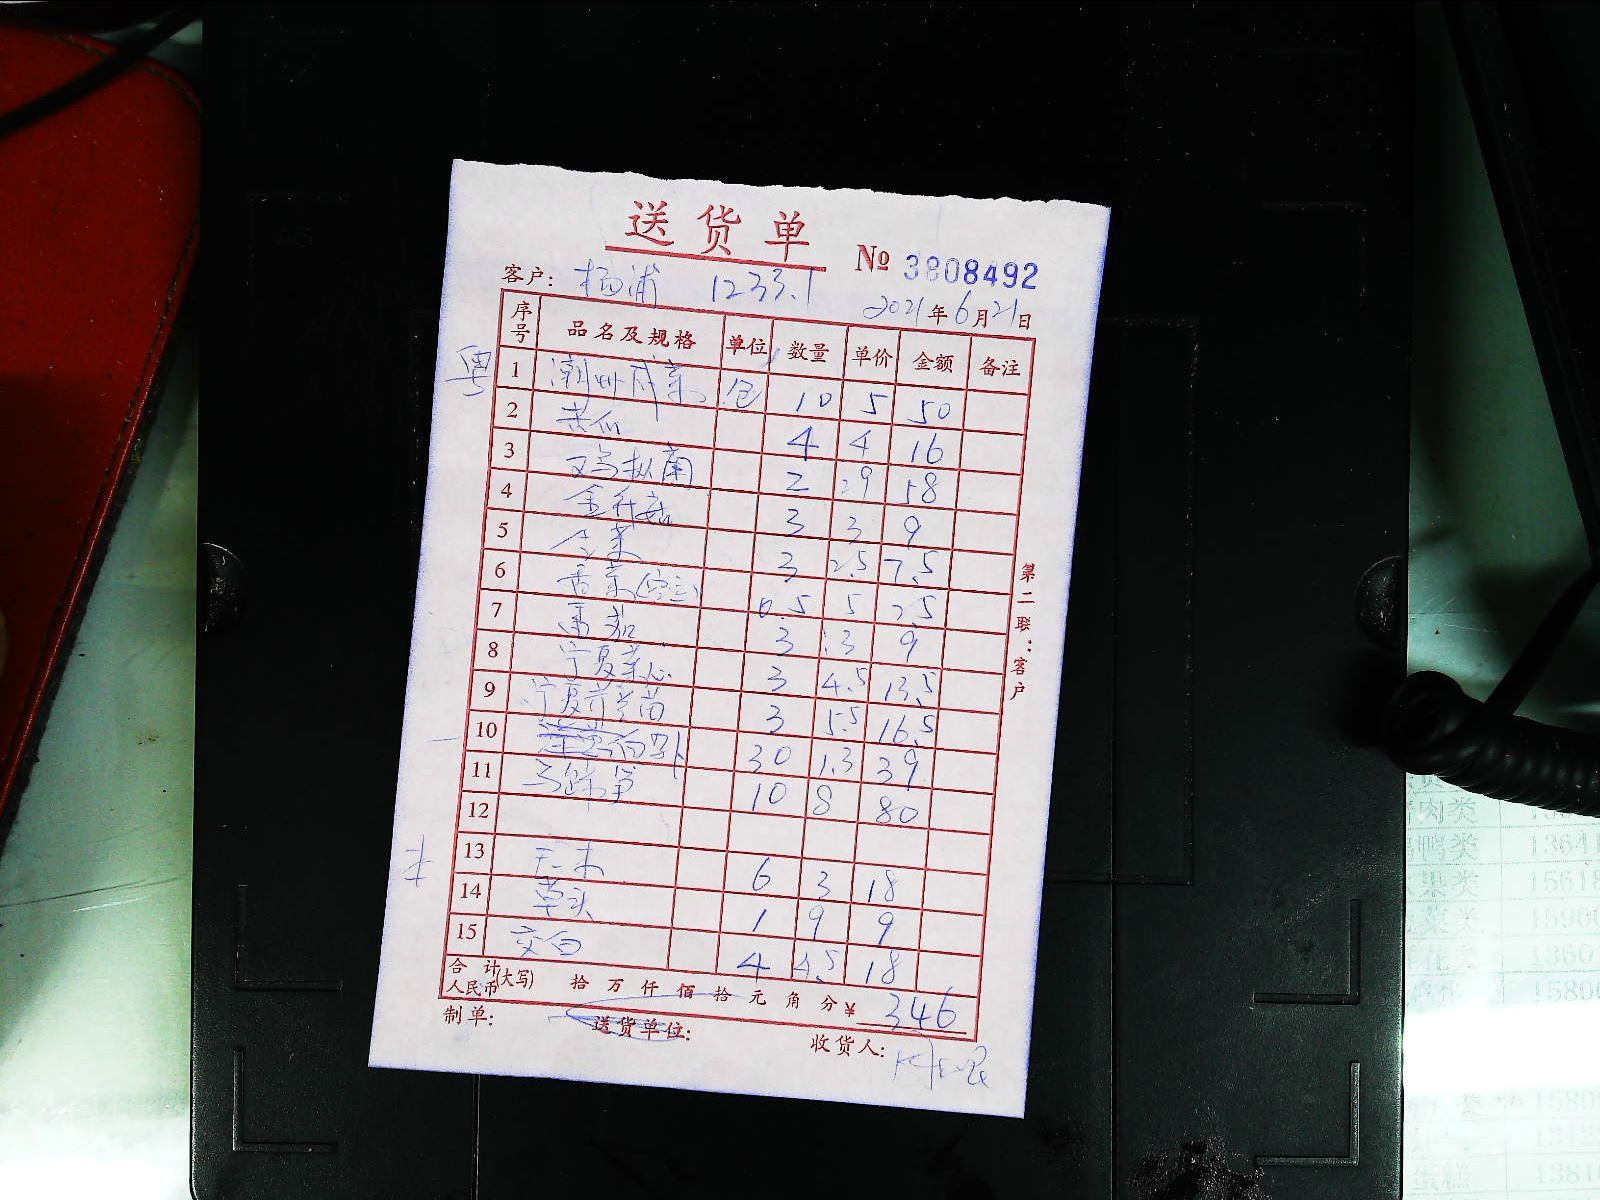 送货单
№ 3808492
客户: 杨浦 1233.1 2021年6月21日
序号 品名及规格 单位 数量 单价 金额 备注
粤 1 潮州咸菜 包 10 5 50
2 苦瓜 4 4 16
3 鸡枞菌 2 29 58
4 金针菇 3 3 9
5 生菜 3 2.5 7.5
6 香菜 0.5 5 2.5
7 番茄 3 3 9
8 宁夏菜心 3 4.5 13.5
9 宁夏芥兰苗 3 5.5 16.5
10 白萝卜 30 1.3 39
11 马蹄笋 10 8 80
12
13 6 3 18
14 草头 1 9 9
15 茭白 4 4.5 18
合计人民币(大写) 拾 万 仟 佰 拾 元 角 分 ¥ 346
制单: 送货单位: 收货人:
第二联：客户
肉类
鸭类 13641
果类 15618
菜类
1360
1580
蛋糕 1381